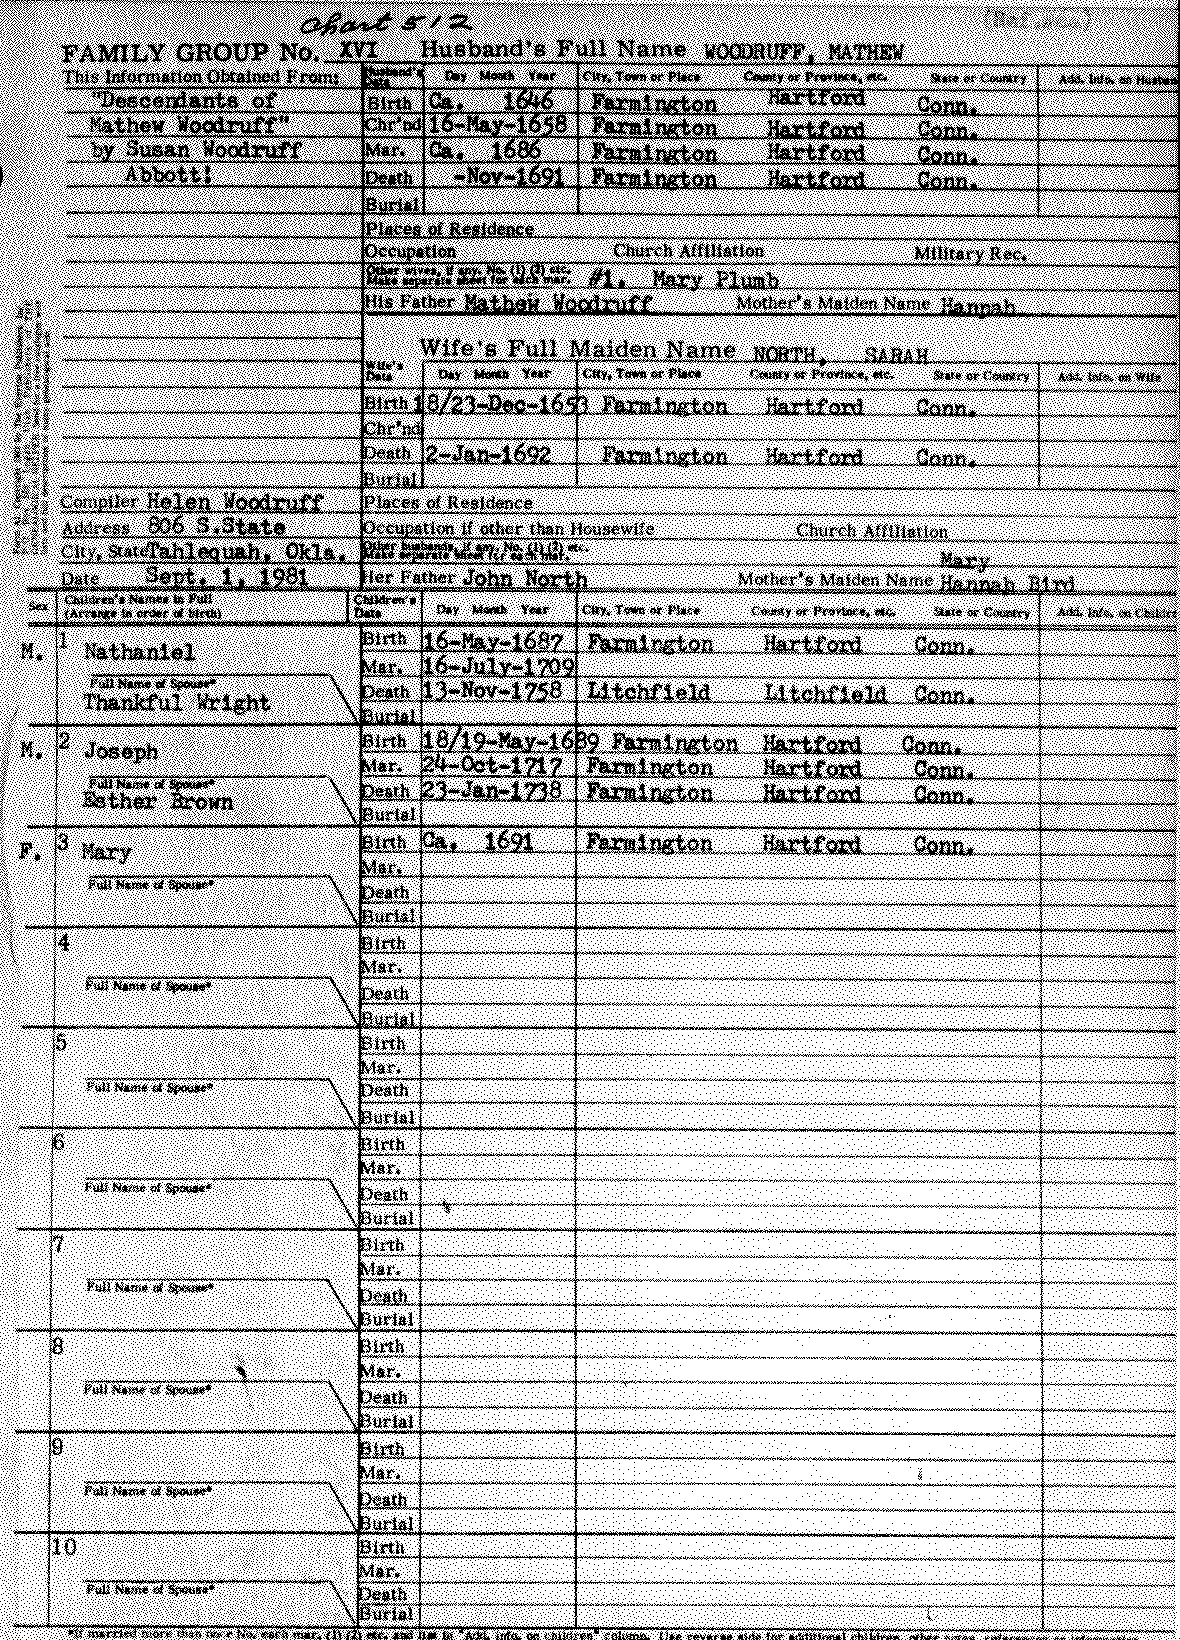 Chart 512
FAMILY GROUP No. XVI Husband's Full Name WOODRUFF, MATHEW
This Information Obtained From: Husband's Data Day Month Year City, Town or Place County or Province, etc. State or Country Add. Info. on Husband
"Descendants of Birth Ca. 1646 Farmington Hartford Conn.
Mathew Woodruff" Chr'nd 16-May-1658 Farmington Hartford Conn.
by Susan Woodruff Mar. Ca. 1686 Farmington Hartford Conn.
Abbott! Death -Nov-1691 Farmington Hartford Conn.
Burial
Places of Residence
Occupation Church Affiliation Military Rec.
Other wives, if any. No. (1) (2) etc.
Make separate sheet for each mar. #1. Mary Plumb
His Father Mathew Woodruff Mother's Maiden Name Hannah
Wife's Full Maiden Name NORTH, SARAH
Wife's Data Day Month Year City, Town or Place County or Province, etc. State or Country Add. Info. on Wife
Birth 18/23-Dec-1653 Farmington Hartford Conn.
Chr'nd
Death 2-Jan-1692 Farmington Hartford Conn.
Burial
Compiler Helen Woodruff Places of Residence
Address 806 S.State Occupation if other than Housewife Church Affiliation
City, State Tahlequah, Okla. Other husbands, if any. No. (1) (2) etc.
Make separate sheet for each mar.
Mary
Date Sept. 1, 1981 Her Father John North Mother's Maiden Name Hannah Bird
Sex Children's Names in Full Children's Data Day Month Year City, Town or Place County or Province, etc. State or Country Add. Info. on Children
(Arrange in order of birth)
M. 1 Nathaniel Birth 16-May-1687 Farmington Hartford Conn.
Mar. 16-July-1709
Full Name of Spouse* Death 13-Nov-1758 Litchfield Litchfield Conn.
Thankful Wright Burial
M. 2 Joseph Birth 18/19-May-1689 Farmington Hartford Conn.
Mar. 24-Oct-1717 Farmington Hartford Conn.
Full Name of Spouse* Death 23-Jan-1738 Farmington Hartford Conn.
Esther Brown Burial
F. 3 Mary Birth Ca. 1691 Farmington Hartford Conn.
Mar.
Full Name of Spouse* Death
Burial
4 Birth
Mar.
Full Name of Spouse* Death
Burial
5 Birth
Mar.
Full Name of Spouse* Death
Burial
6 Birth
Mar.
Full Name of Spouse* Death
Burial
7 Birth
Mar.
Full Name of Spouse* Death
Burial
8 Birth
Mar.
Full Name of Spouse* Death
Burial
9 Birth
Mar.
Full Name of Spouse* Death
Burial
10 Birth
Mar.
Full Name of Spouse* Death
Burial
*If married more than once No. each mar. (1) (2) etc. and list in "Add. info. on children" column. Use reverse side for additional children, other notes, references or information.